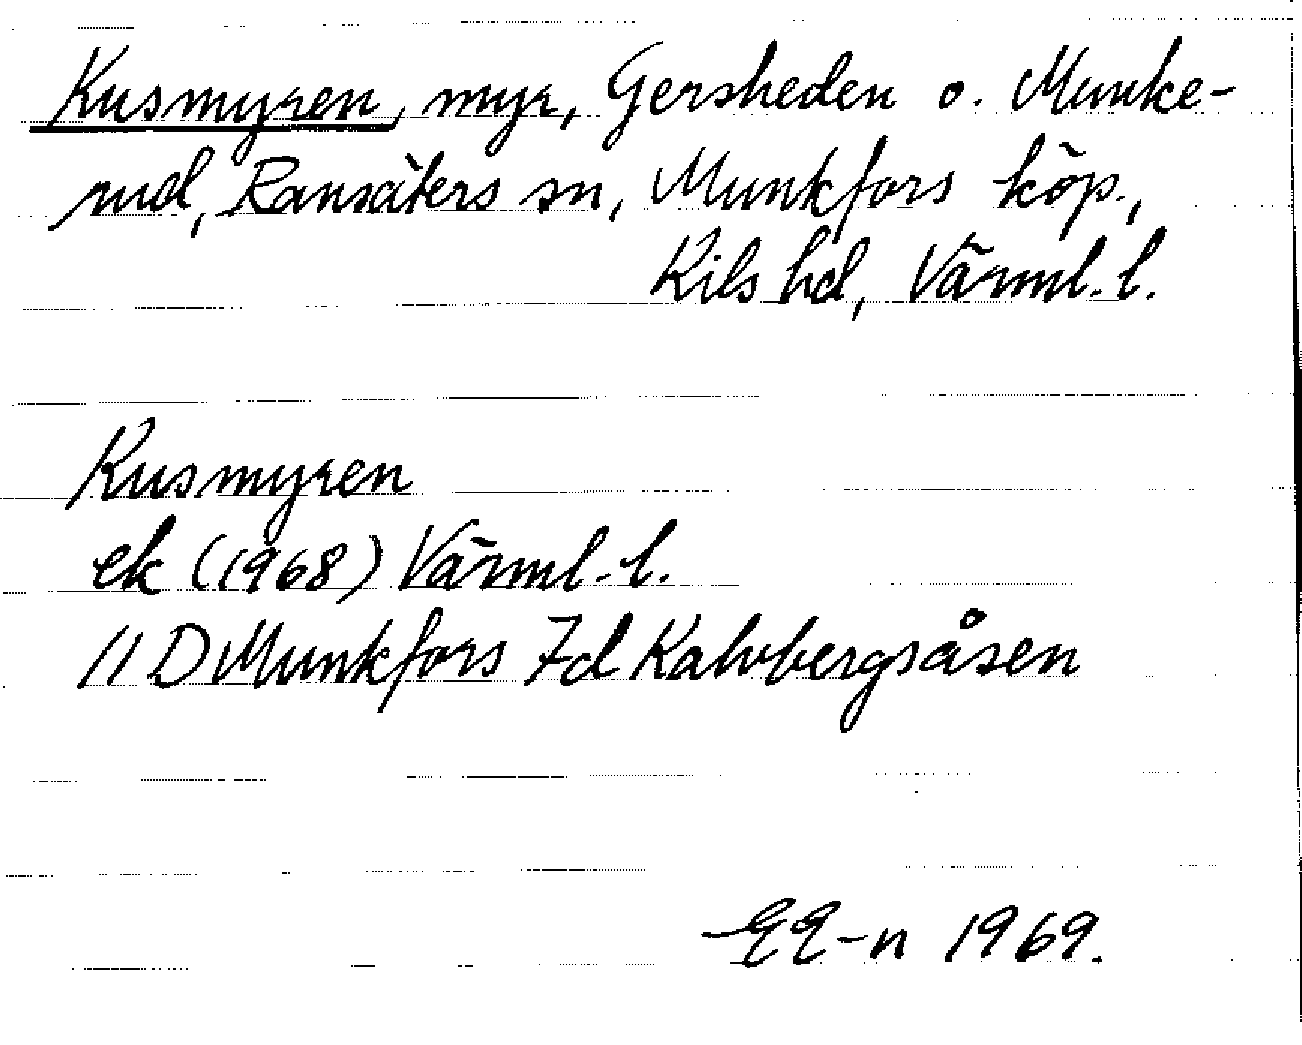 Kusmyren, myr, Gersheden o. Munke-
rud, Ransäters sn, Munkfors köp.,
Kils hd, Värml. l.
Kusmyren
ek (1968) Värml. l.
11 D Munkfors 7d Kalvbergsåsen
EE-n 1969.